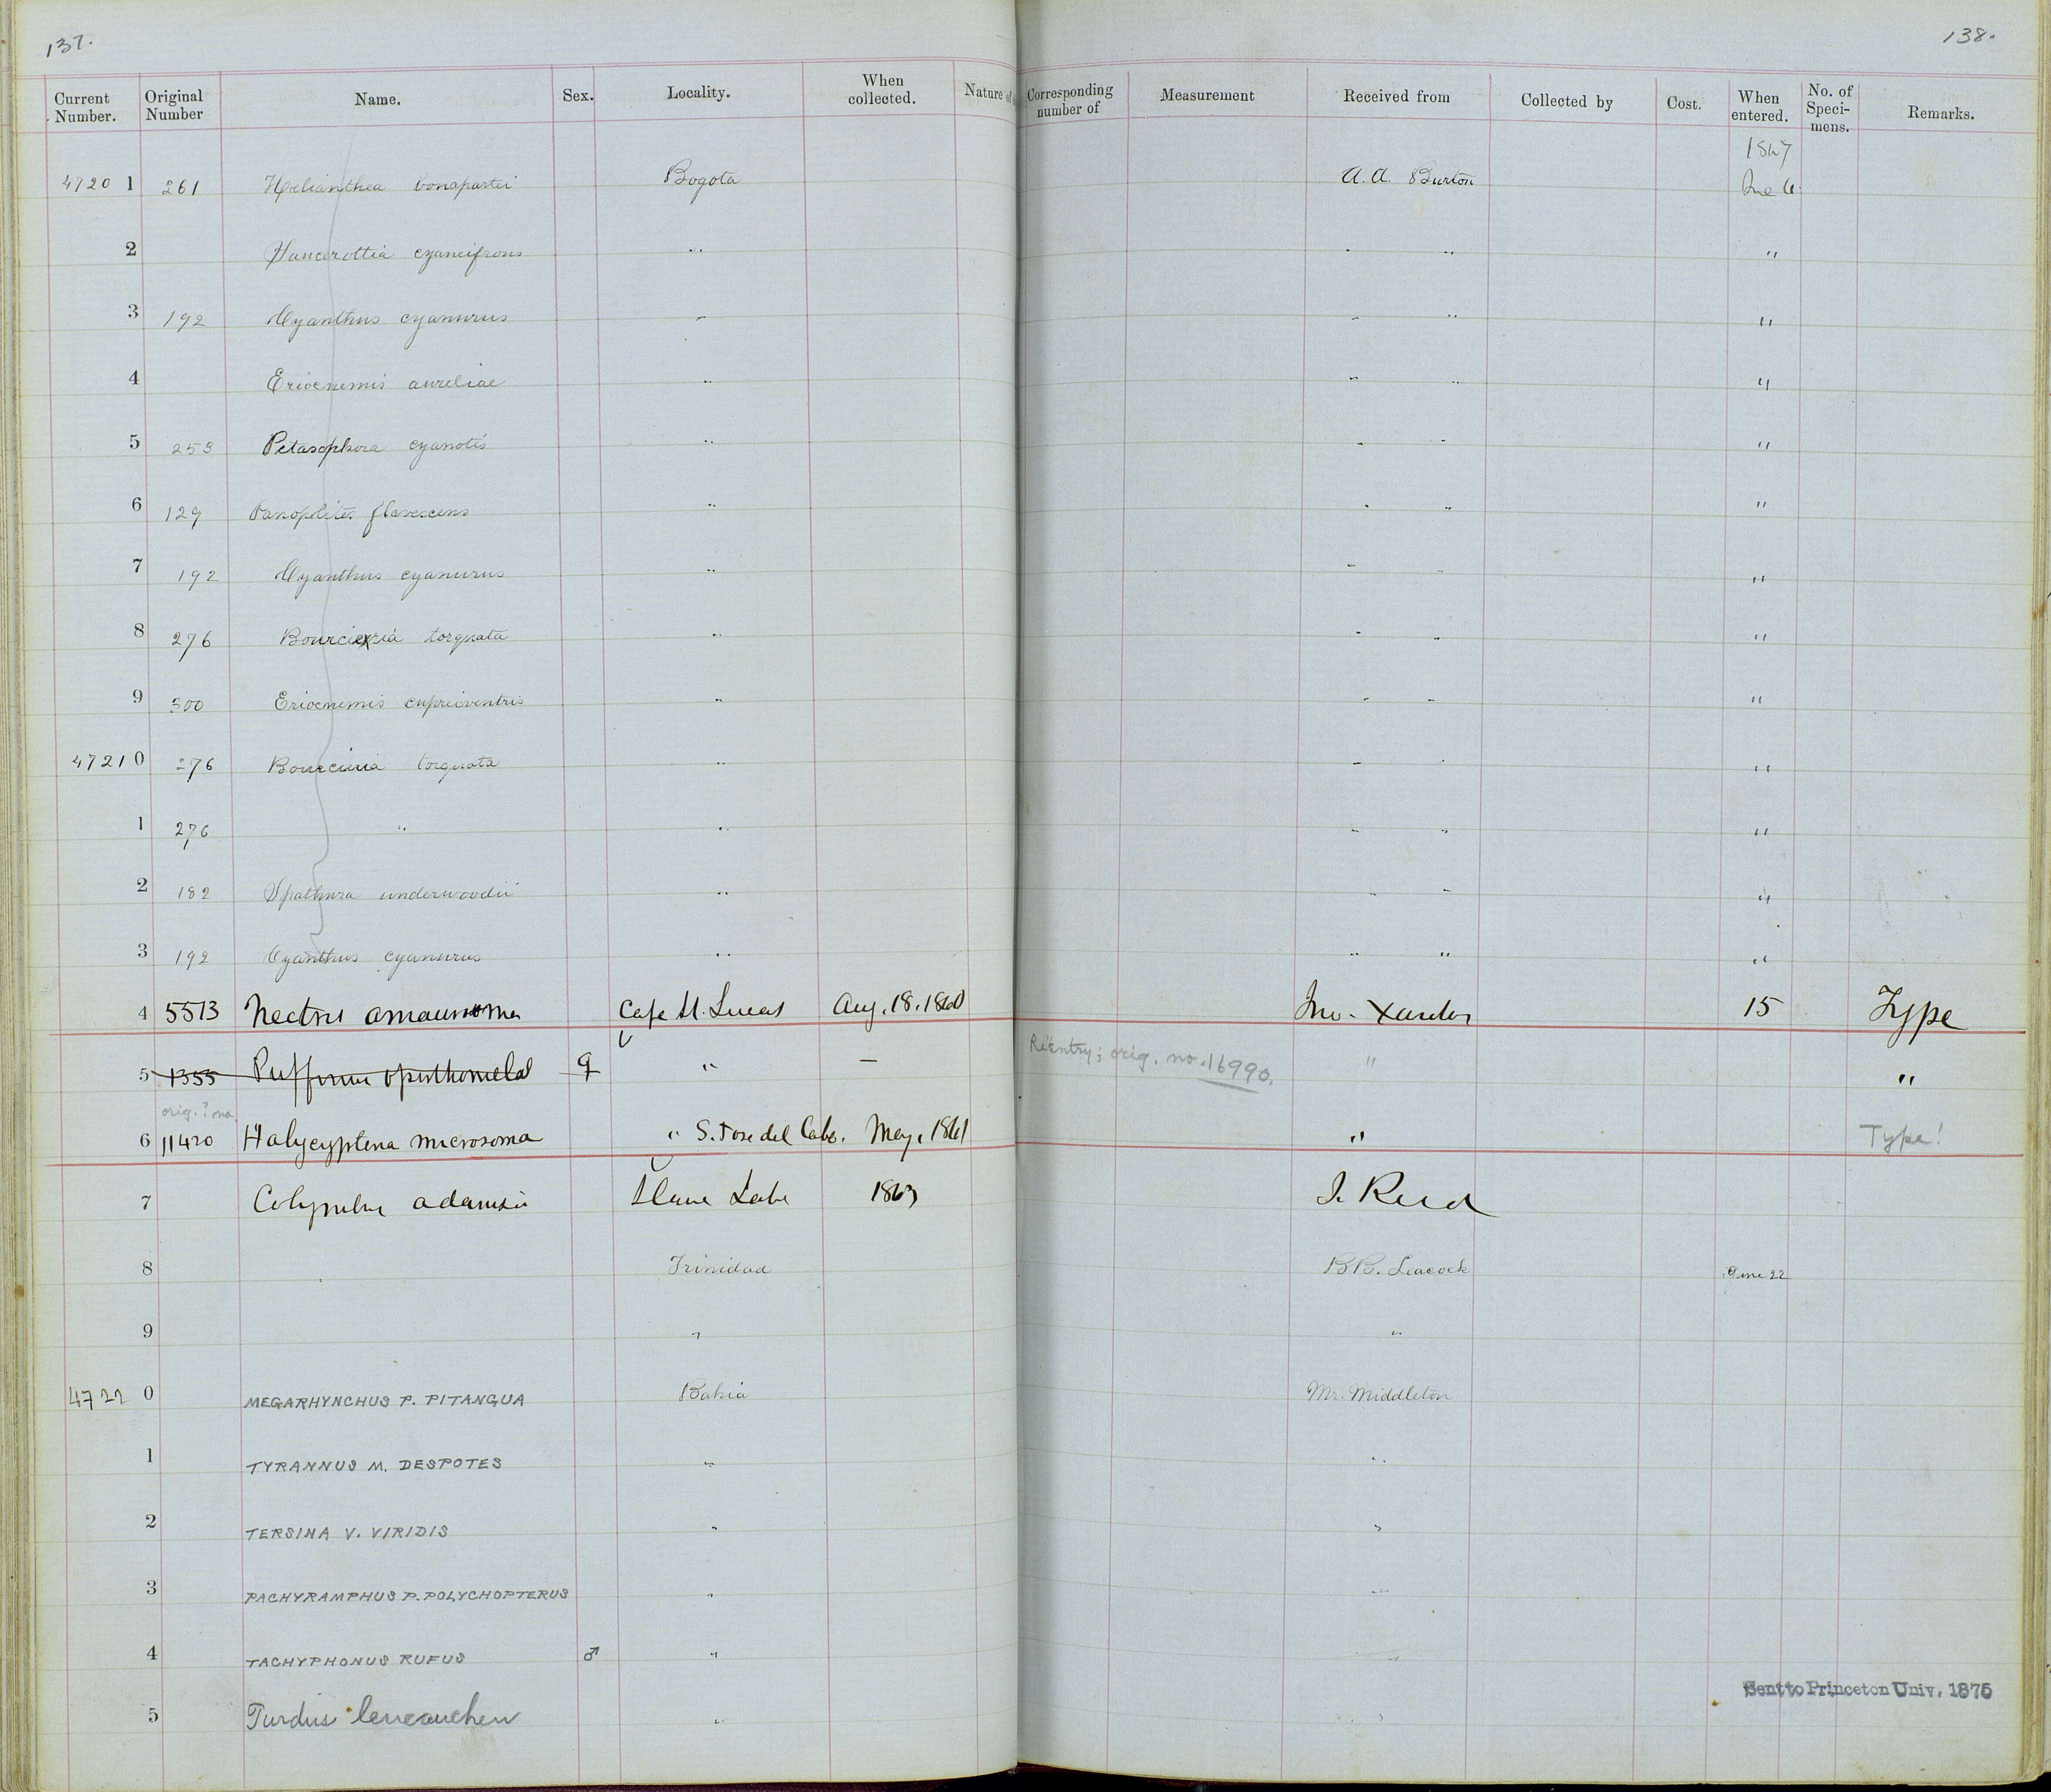 137.
138.
Current Number. Original Number Name. Sex. Locality. When collected. Nature of Corresponding number of Measurement Received from Collected by Cost. When entered. No. of Speci- mens. Remarks.
1867
4720 1 261 Helianthea bonapartei Bogota A. A. Burton June 6
2 cyaneifrons " " " "
3 192 Cyanthus cyanurus " " " "
4 Eriocnemis aureliae " " " "
5 253 Petasophora cyanotis " " " "
6 129 Panoplites flavescens " " " "
7 192 Cyanthus cyanurus " " " "
8 276 Bourcieria torquata " " " "
9 300 Eriocnemis cupreiventris " " " "
4721 0 276 Bourcieria torquata " " " "
1 276 " " " " "
2 182 Spathura underwoodii " " " "
3 192 Cyanthus cyanurus " " " "
4 5513 Nectris amaurosoma Cape St. Lucas Aug. 18. 1860 Jno. Xantus 15 Type
5 1355 Puffinus opisthomelas ♀ " — Reëntry; orig. no. 16990. " "
orig.? no.
6 11420 Halycyptena microsoma " S. Jose del Cabo. May, 1861 " Type!
7 Colymbus adamsii Slave Lake 1863 J. Reid
8 Trinidad B B. Leacock June 22
9 " "
4722 0 MEGARHYNCHUS P. PITANGUA Bahia Mr. Middleton
1 TYRANNUS M. DESPOTES " "
2 TERSINA V. VIRIDIS " "
3 PACHYRAMPHUS P. POLYCHOPTERUS " "
4 TACHYPHONUS RUFUS ♂ " "
Sent to Princeton Univ. 1875
5 Turdus leucauchen " "